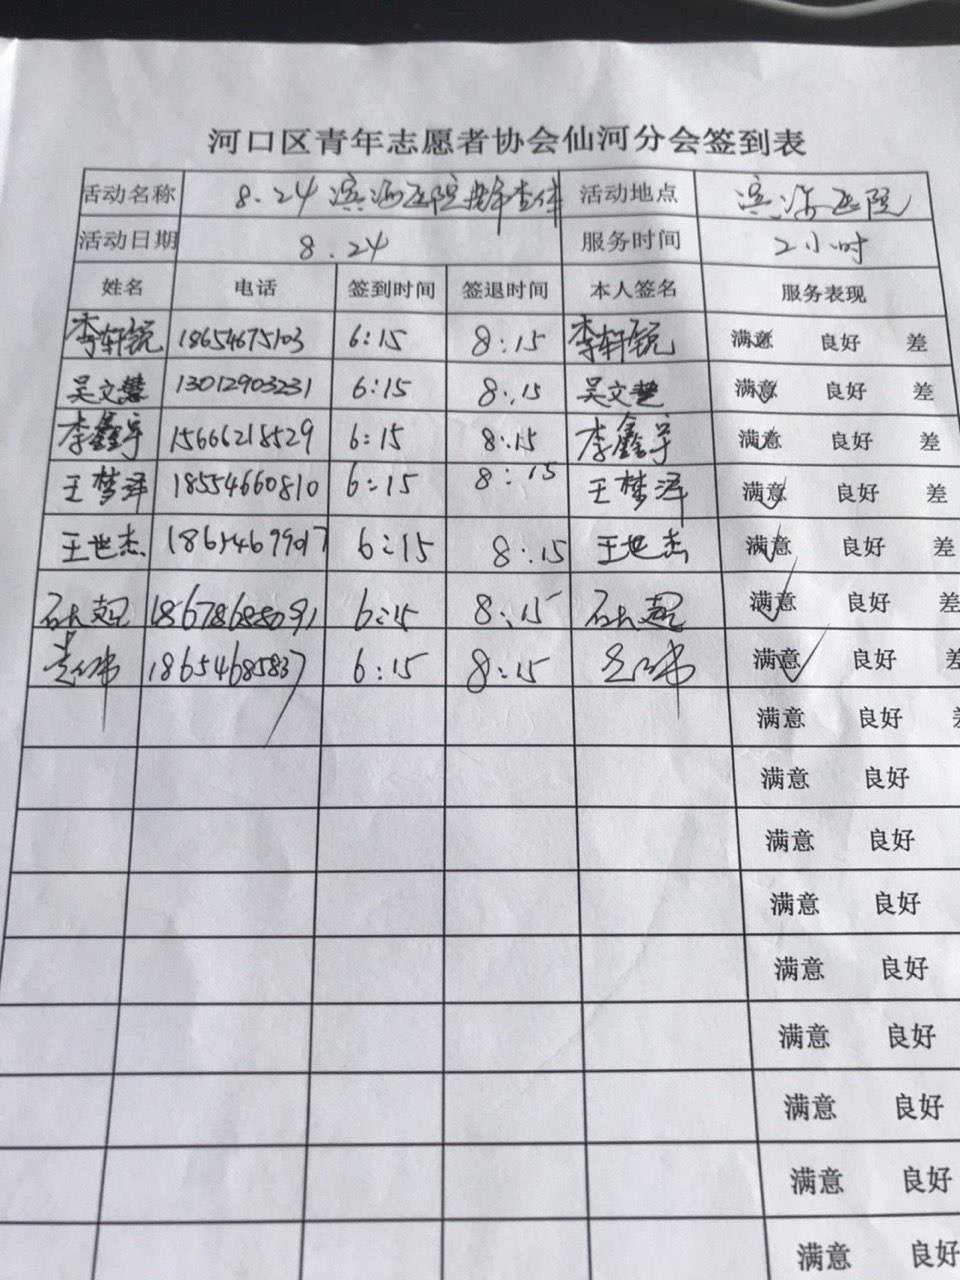 河口区青年志愿者协会仙河分会签到表
活动名称 8.24 滨海医院 查体 活动地点 滨海医院
活动日期 8.24 服务时间 2小时
姓名 电话 签到时间 签退时间 本人签名 服务表现
李轩锐 18654675103 6:15 8:15 李轩锐 满意 良好 差
吴文慧 13012903231 6:15 8:15 吴文慧 满意 良好 差
李鑫宇 15666218529 6:15 8:15 李鑫宇 满意 良好 差
王梦泽 18554660810 6:15 8:15 王梦泽 满意 良好 差
王世杰 6:15 8:15 王世杰 满意 良好 差
6:15 8:15 满意 良好 差
18654685837 6:15 8:15 满意 良好 差
满意 良好 差
满意 良好
满意 良好
满意 良好
满意 良好
满意 良好
满意 良好
满意 良好
满意 良好